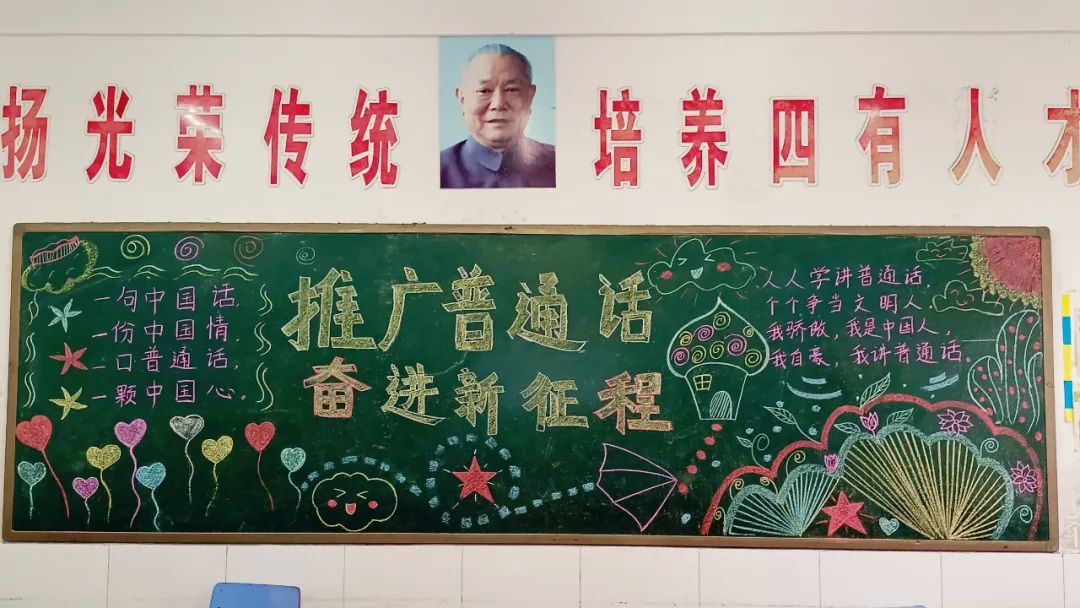 扬光荣传统 培养四有人才
推广普通话
奋进新征程
一句中国话,
一份中国情,
一口普通话,
一颗中国心。
人人学讲普通话,
个个争当文明人,
我骄傲,我是中国人,
我自豪,我讲普通话。